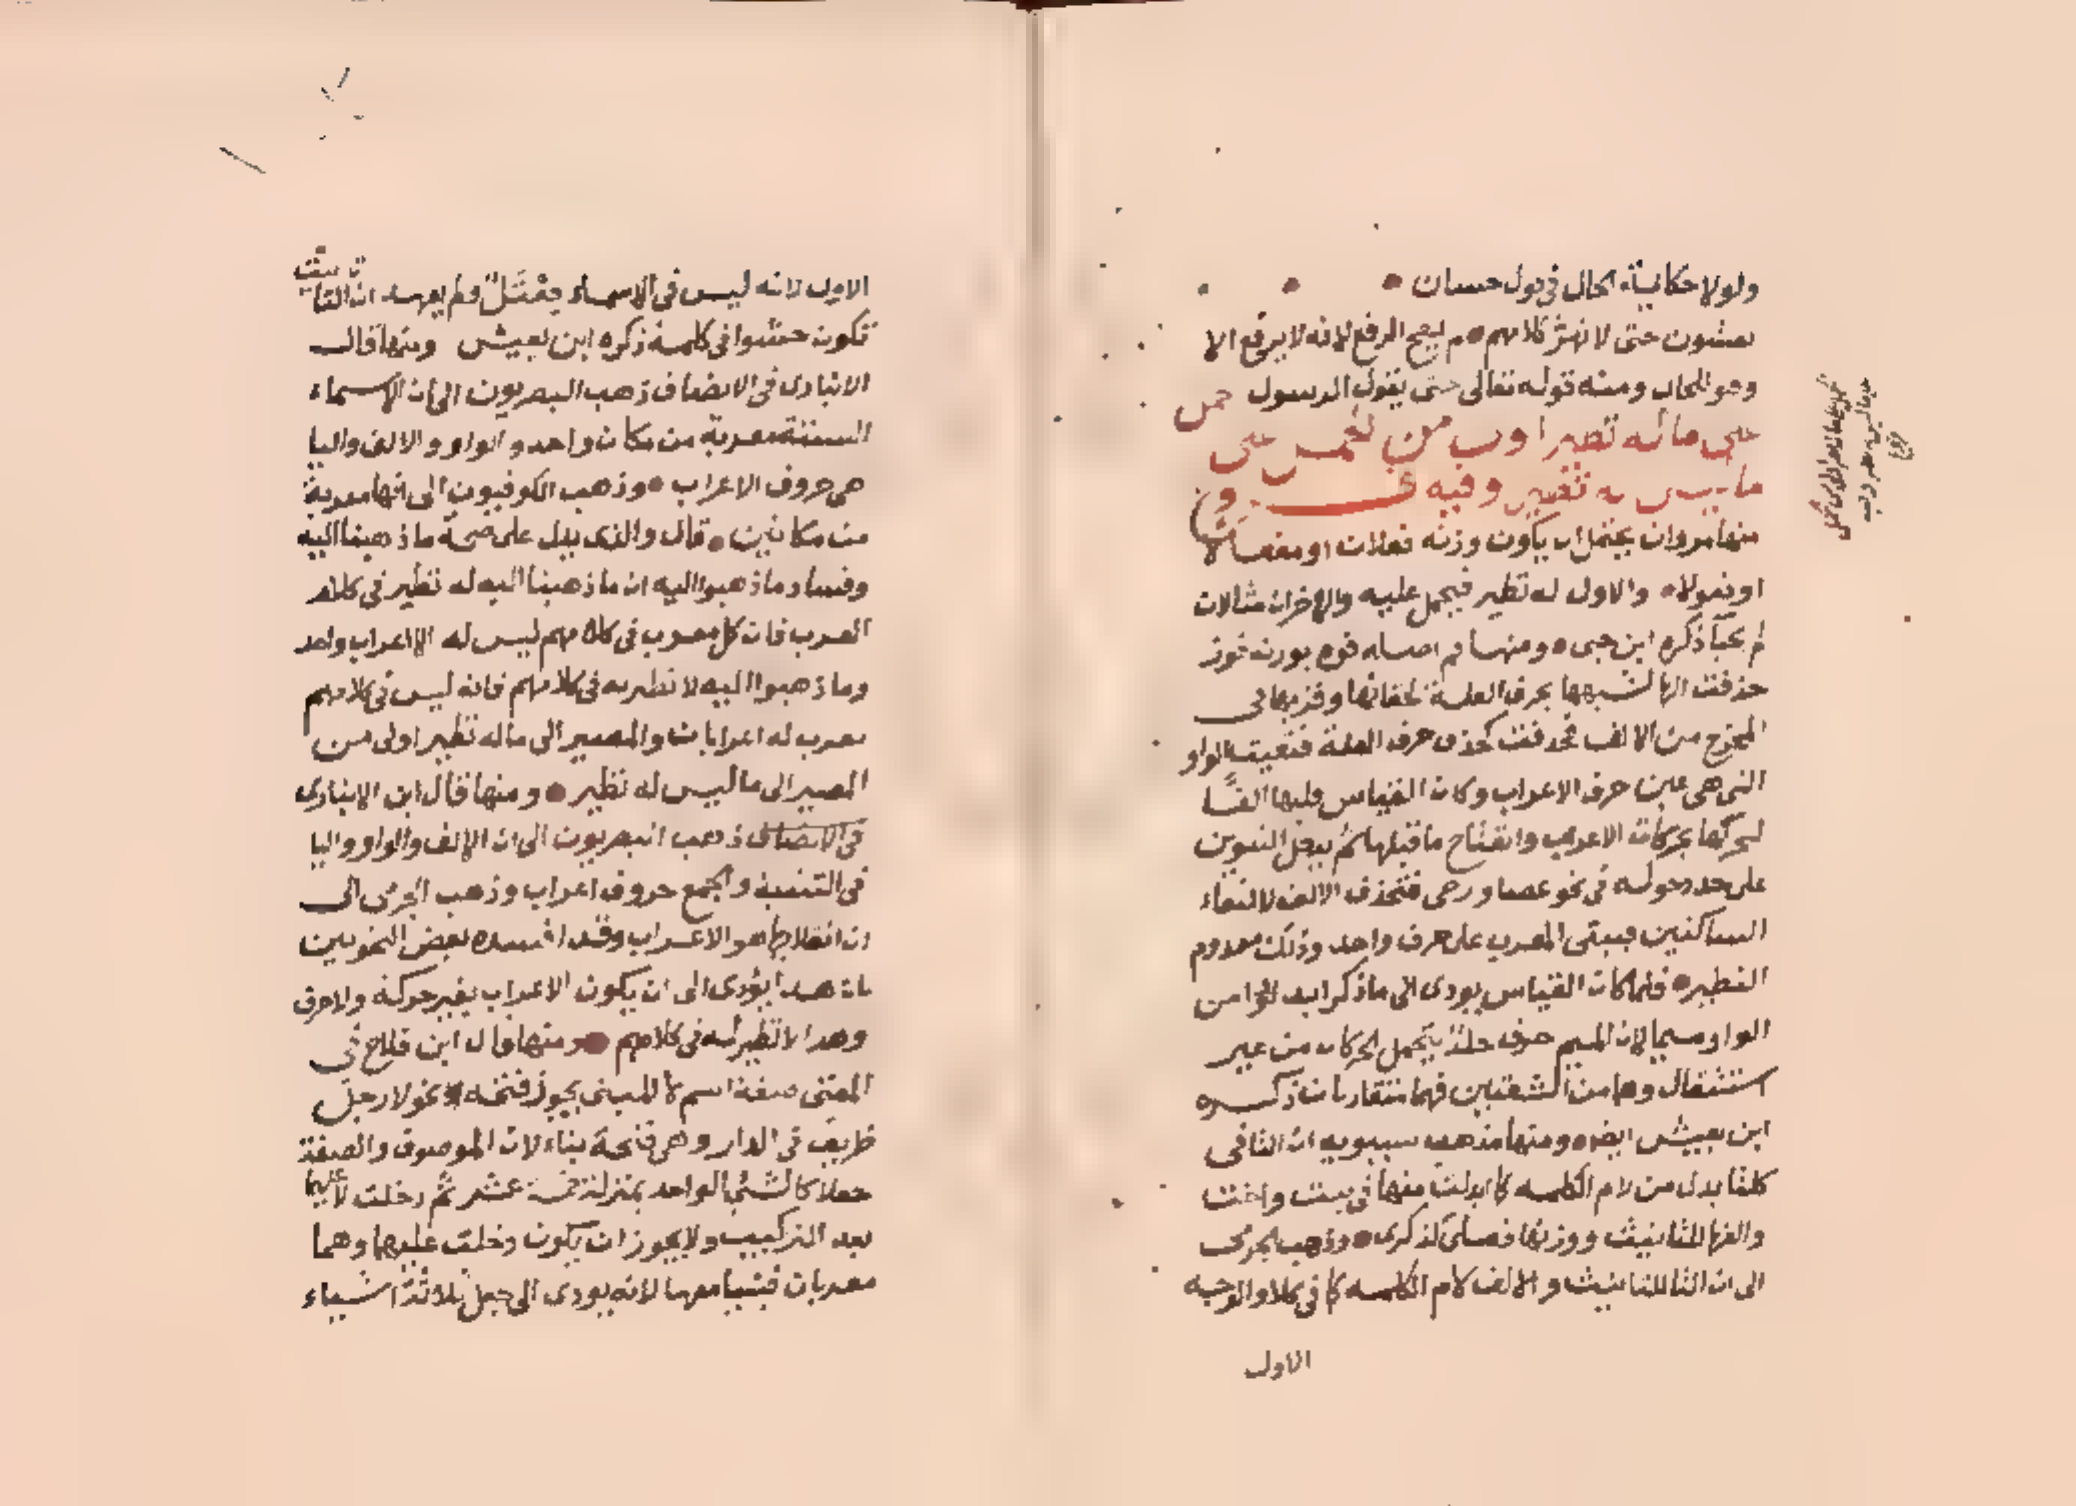 ولولا حكاية الحال في قول حسان
يغشون حتى لا تهر كلابهم لم يصح الرفع لانه لا يرفع الا
وهو للحال ومنه قوله تعالى حتى يقول الرسول حمل
على ماله نظير اولى من الحمل على
ما ليس له نظير وفيه فروع
منها مروان يحتمل ان يكون وزنه فعلان او مفعالا
او فعوالا والاول له نظير فيحمل عليه والاخران مثالان
لم يجيا ذكره ابن جنى ومنها فم اصله فوه بوزن فوز
حذفت الها لشبهها بحرف العلة لخفائها وقربها في
المخرج من الالف فحذفت كحذف حرف العلة فبقيت الواو
التي هي عين حرف الاعراب وكان القياس قلبها الفا
لتحركها بحركات الاعراب وانفتاح ما قبلها ثم يدخل التنوين
على حد دخوله في نحو عصا ورحى فتحذف الالف لالتقاء
الساكنين فيبقى المعرب على حرف واحد وذلك معدوم
النظير فلما كان القياس يودى الى ما ذكر ابدلوا من
الواو ميما لان الميم حرف جلد يتحمل الحركات من غير
استثقال وهما من الشفتين فهما متقاربان ذكره
ابن يعيش ايضا ومنها مذهب سيبويه ان التا في
كلتا بدل من لام الكلمة كما ابدلت منها في بنت واخت
والفها للتانيث ووزنها فعلى كذكرى وذهب الجرمى
الى ان التا للتانيث والالف لام الكلمه كما في كلا والوجه
الاول
الاول لانه ليس في الاسماء فعتل ولم يعهد ان التا تانيث
تكون حشوا في كلمة ذكره ابن يعيش ومنها قال
الانبارى في الانصاف ذهب البصريون الى ان الاسماء
الستة معربة من مكان واحد والواو والالف واليا
هي حروف الاعراب وذهب الكوفيون الى انها معربة
من مكانين قال والذى يدل على صحة ما ذهبنا اليه
وفساد ما ذهبوا اليه ان ما ذهبنا اليه له نظير في كلام
العرب فان كل معرب في كلامهم ليس له الا اعراب واحد
وما ذهبوا اليه لا نظير له في كلامهم فانه ليس في كلامهم
معرب له اعرابان والمصير الى ماله نظير اولى من
المصير الى ما ليس له نظير ومنها قال ابن الانبارى
في الانصاف ذهب البصريون الى ان الالف والواو واليا
في التثنية والجمع حروف اعراب وذهب الجرمى الى
ان انقلابها هو الاعراب وقد افسده بعض النحويين
بان هذا يؤدى الى ان يكون الاعراب بغير حركة ولا حرف
وهذا لا نظير له في كلامهم ومنها قال ابن فلاح في
المغنى صفة اسم لا المبنى يجوز فتحه نحو لا رجل
ظريف في الدار وهي فتحة بناء لان الموصوف والصفة
جعلا كالشئ الواحد بمنزلة خمسة عشر ثم دخلت لا عليهما
بعد التركيب ولا يجوز ان يكون دخلت عليهما وهما
معربان فبنيا معها لانه يودى الى جعل ثلاثة اشياء